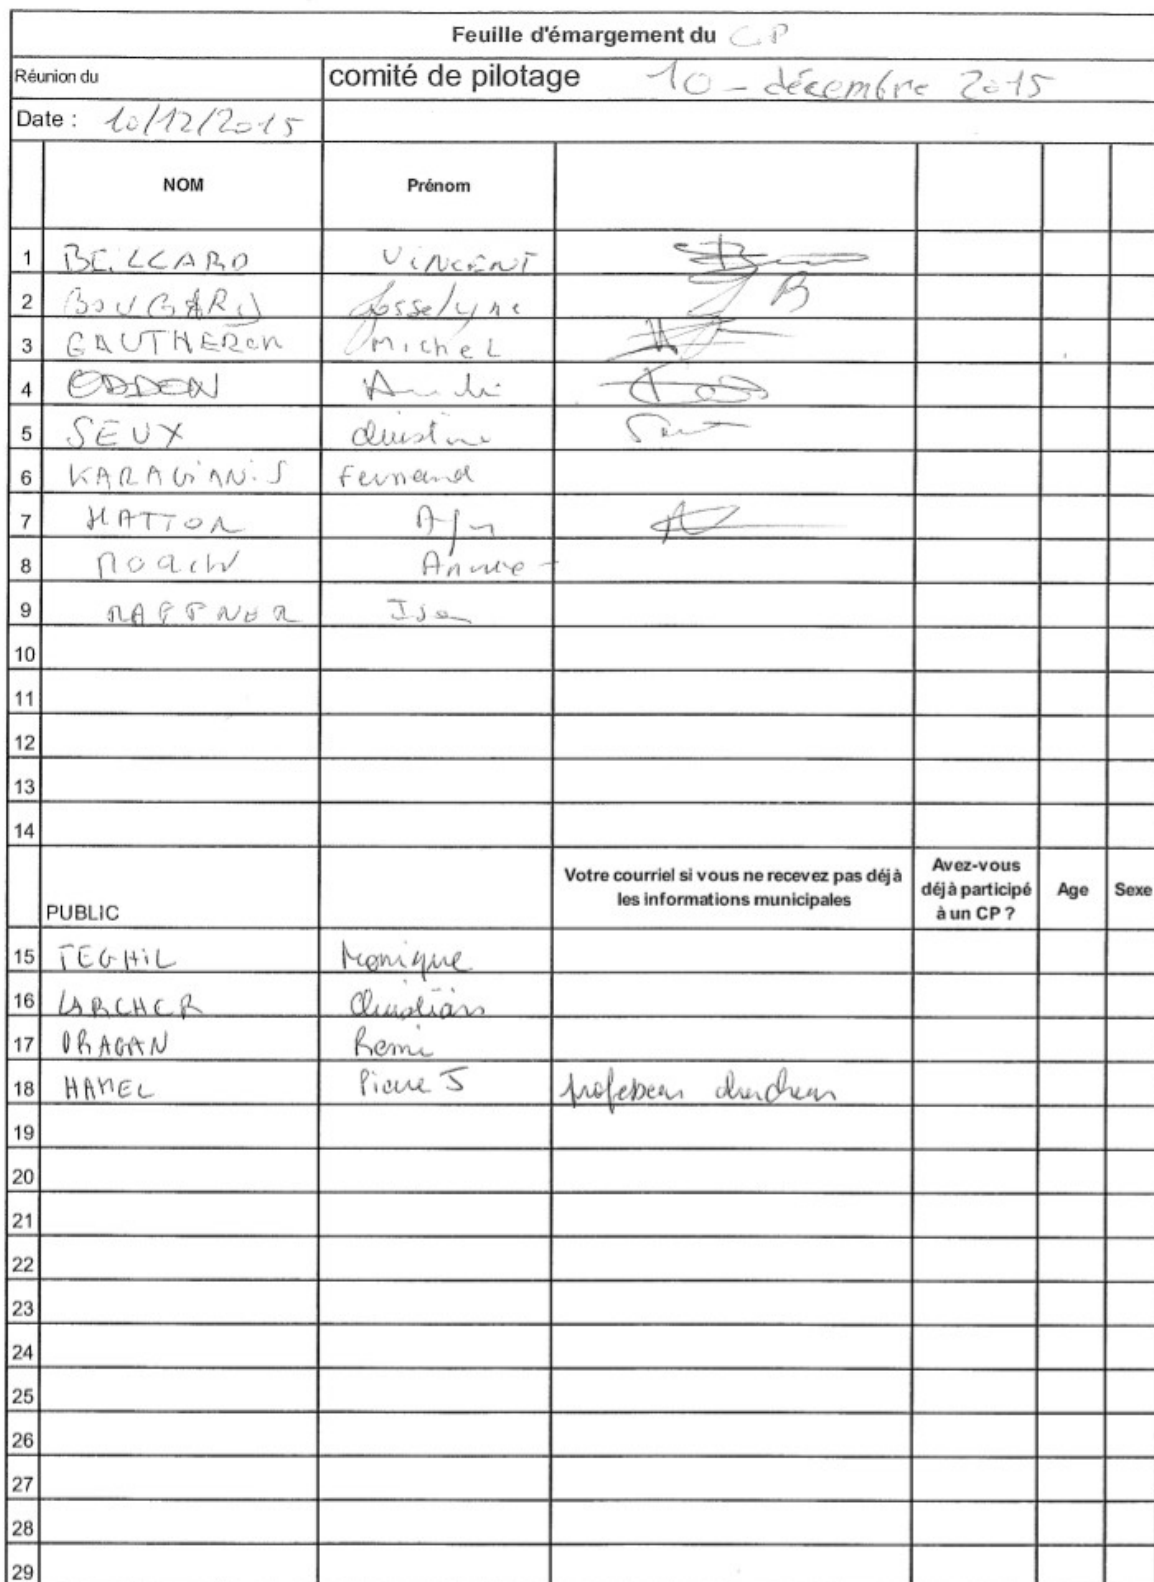 Feuille d'émargement du CP
Réunion du comité de pilotage 10 - décembre 2015
Date : 10/12/2015
NOM Prénom
1 BEILLARD VINCENT
2 BOUGARD Josselyne B
3 GAUTHERON Michel
4 ODDON André
5 SEUX Christine
6 KARAGIANIS Fernand
7 HATTON
8 Annie
9
10
11
12
13
14
PUBLIC Votre courriel si vous ne recevez pas déjà les informations municipales Avez-vous déjà participé à un CP ? Age Sexe
15 TEGHIL Monique
16 LARCHER Christian
17 DRAGAN Remi
18 HAMEL Pierre J professeur chercheur
19
20
21
22
23
24
25
26
27
28
29